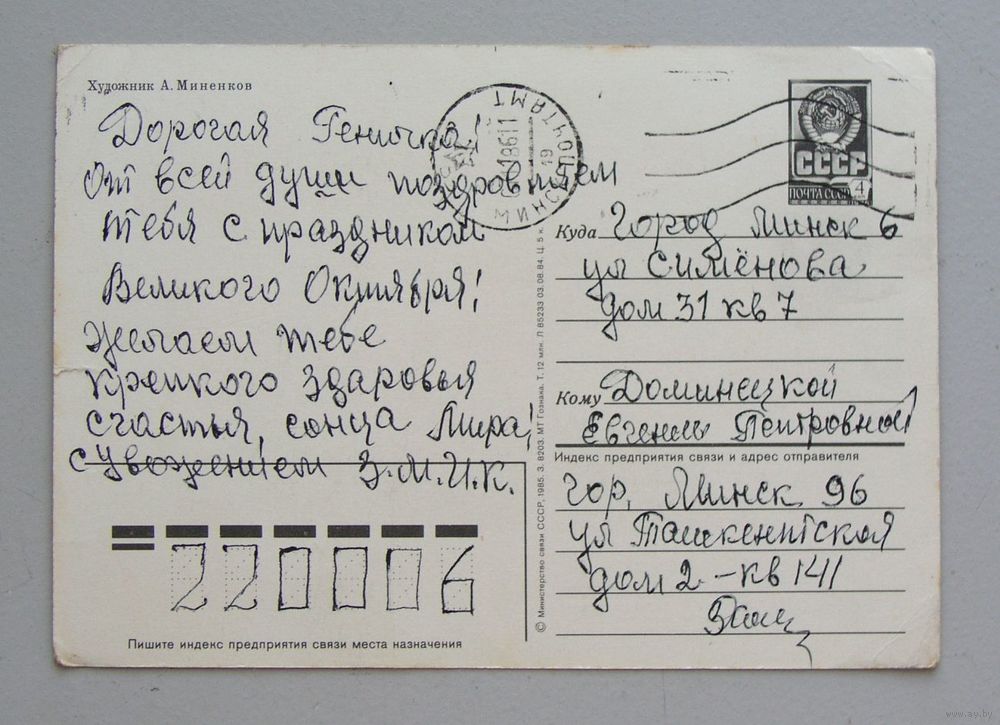 Художник А. Миненков
Дорогая Геничка!
От всей души поздровляем
тебя с праздником
Великого Октября!
Желаем тебе
крепкого здаровья
счастья, сонца Мира!
с Увожением З.М.И.К.
МИНСК ПОЧТАМТ
СССР
ПОЧТА СССР 4
Куда Город Минск 6
ул Симёнова
дом 31 кв 7
Кому Доминецкой
Евгении Петровной
Индекс предприятия связи и адрес отправителя
гор. Минск 96
ул Ташкентская
дом 2 – кв 141
220006
Пишите индекс предприятия связи места назначения
© Министерство связи СССР, 1985. З. 8203. МТ Гознака. Т. 12 млн. Л 85233 03.08.84. Ц. 5 к.
www.ay.by